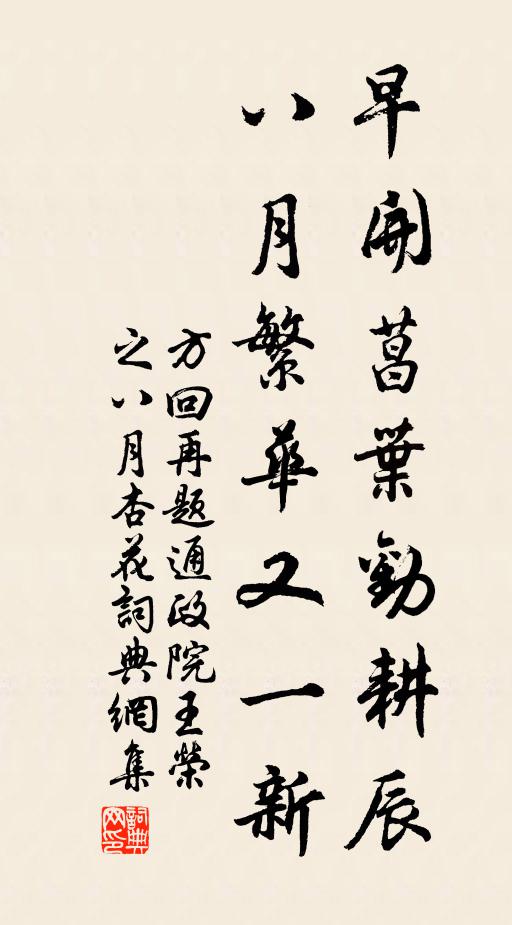 早開菖葉勸耕辰
八月繁華又一新
方回再題通政院王榮
之八月杏花詞典網集
詞典
网印